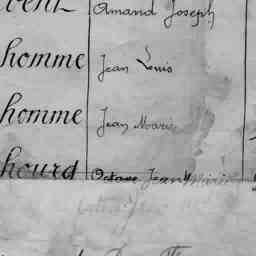 Amand Joseph
homme Jean Louis
homme Jean Marie
hourd Octave Jean Marie